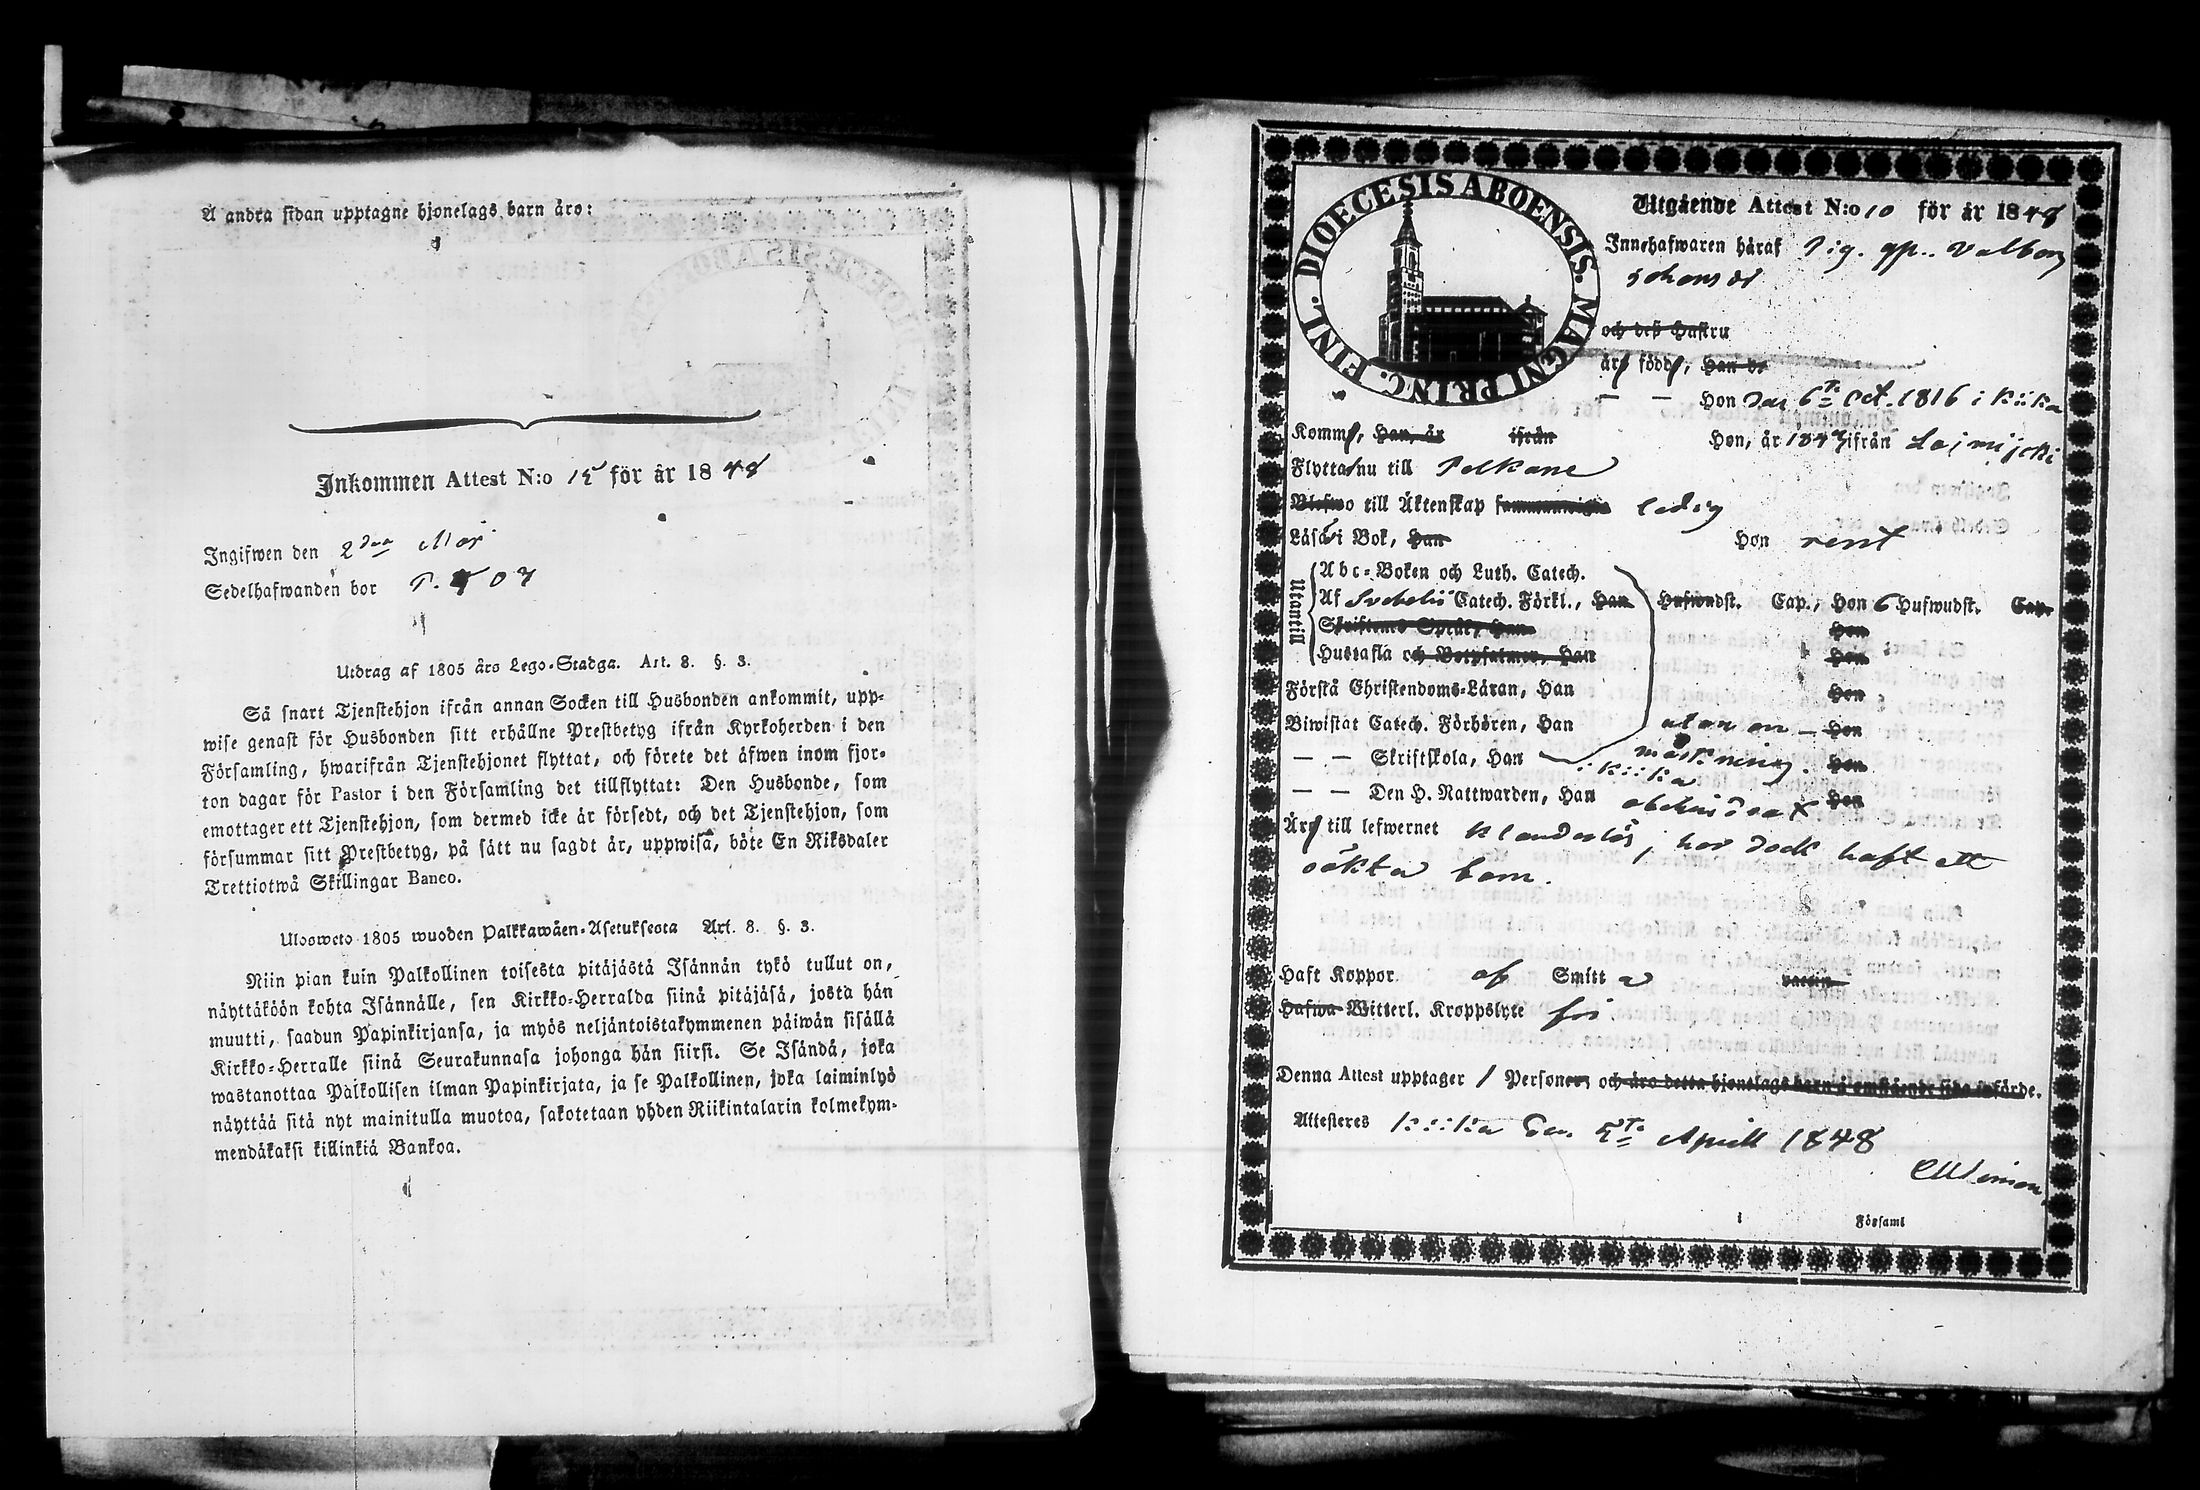 Å andra sidan upptagne hjonelags barn äro:
Inkommen Attest N:o 15 för år 1848
Ingifwen den 2dra Mar
Sedelhafwanden bor P. 407
Utdrag af 1805 års Lego-Stadga. Art. 8. §. 3.
Så snart Tjenstehjon ifrån annan Socken till Husbonden ankommit, upp-
wise genast för Husbonden sitt erhållne Prestbetyg ifrån Kyrkoherden i den
Församling, hwarifrån Tjenstehjonet flyttat, och förete det äfwen inom fjor-
ton dagar för Pastor i den Församling det tillflyttat: Den Husbonde, som
emottager ett Tjenstehjon, som dermed icke är försedt, och det Tjenstehjon, som
försummar sitt Prestbetyg, på sätt nu sagdt är, uppwisa, böte En Riksdaler
Trettiotwå Skillingar Banco.
Ulosweto 1805 wuoden Palkkawäen-Asetuksesta Art. 8. §. 3.
Niin pian kuin Palkollinen toisesta pitäjästä Isännän tykö tullut on,
näyttäköön kohta Isännälle, sen Kirkko-Herralda siinä pitäjäsä, josta hän
muutti, saadun Papinkirjansa, ja myös neljäntoistakymmenen päiwän sisällä
Kirkko-Herralle siinä Seurakunnasa johonga hän siirsi. Se Isändä, joka
wastanottaa Palkollisen ilman Papinkirjata, ja se Palkollinen, joka laiminlyö
näyttää sitä nyt mainitulla muotoa, sakotetaan yhden Riikintalarin kolmekym-
mendäkaksi killinkiä Bankoa.
DIOECESIS ABOENSIS. MAGNI PRINC. FINL.
Utgående Attest N:o 10 för år 1848
Innehafwaren häraf Pig. Valborg
Johansdr
och dess Hustru
är född, Han d.
— — Hon den 6te Oct. 1816 i Kiika
Komm, Han, år ifrån Hon, år 1847 ifrån Loimijoki
Flytta nu till Pelkane
till Äktenskap ledig
Läsa i Bok, Han Hon rent
Utantill
Abc-Boken och Luth. Catech.
Af Svebelii Catech. Förkl., Han Hufwudst. Cap., Hon 6 Hufwudst. Cap.
Skriftenes Språk, Han Hon
Hustafla och Botpsalmer, Han Hon
Förstå Christendoms-Läran, Han Hon
Biwistat Catech. Förhören, Han utan an- Hon
— — Skriftskola, Han märkning. Hon
i Kiika
— — Den H. Nattwarden, Han Hon
Är till lefwernet klanderlös, har dock haft ett
oäkta barn.
Haft Koppor af Smitta vaccin
Hafwa Witterl. Kroppslyte fri
Denna Attest upptager 1 Personer och äro detta hjonelags barn å omstående sida införde.
Attesteres Kiika den 5te April 1848
i Församl